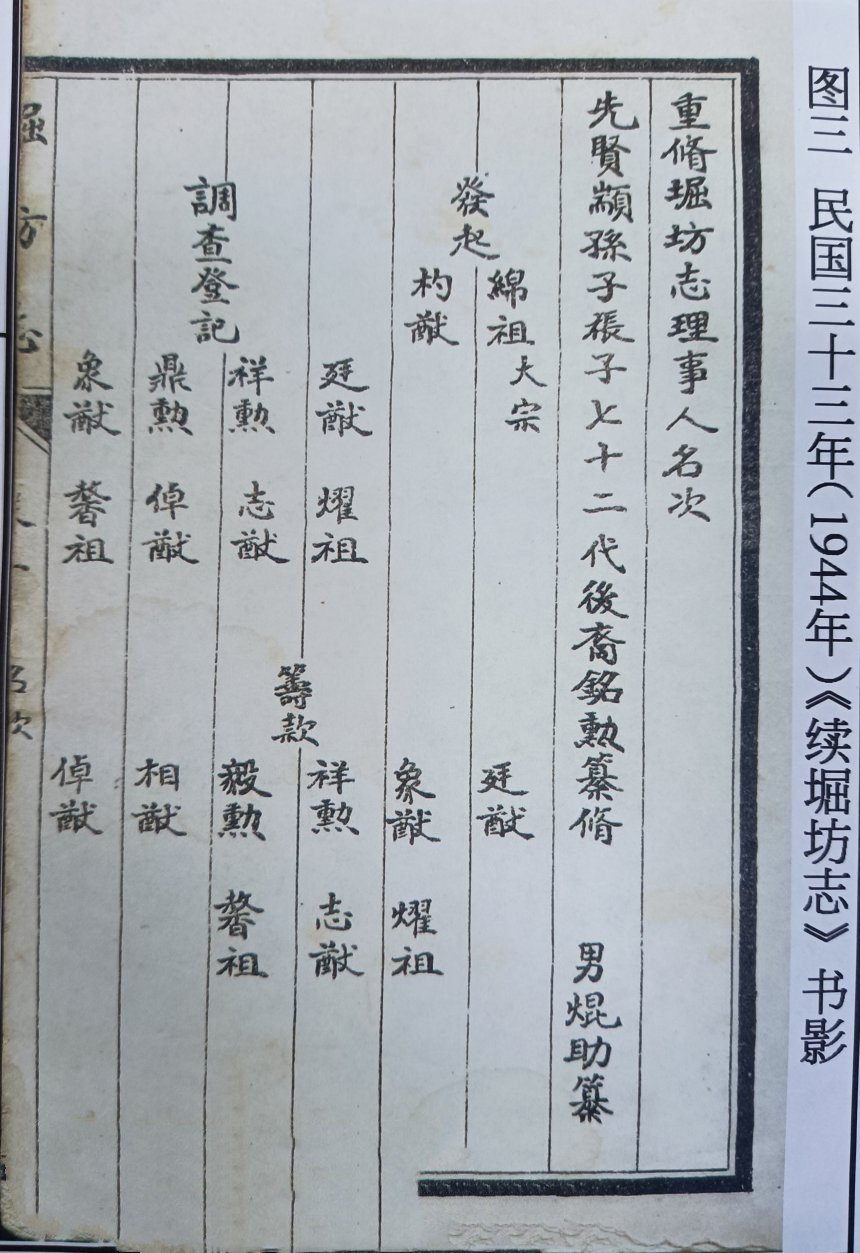 图三 民国三十三年(1944年)《续堀坊志》书影
重脩堀坊志理事人名次
先賢顓孫子張子七十二代後裔銘勲纂脩 男焜助纂
發起
綿祖大宗
杓猷
調查登記
廷猷 耀祖
祥勲 志猷
鼎勲 倬猷
象猷 馨祖
籌款
廷猷
象猷 耀祖
祥勲 志猷
毅勲 馨祖
相猷
倬猷
堀坊志
名次